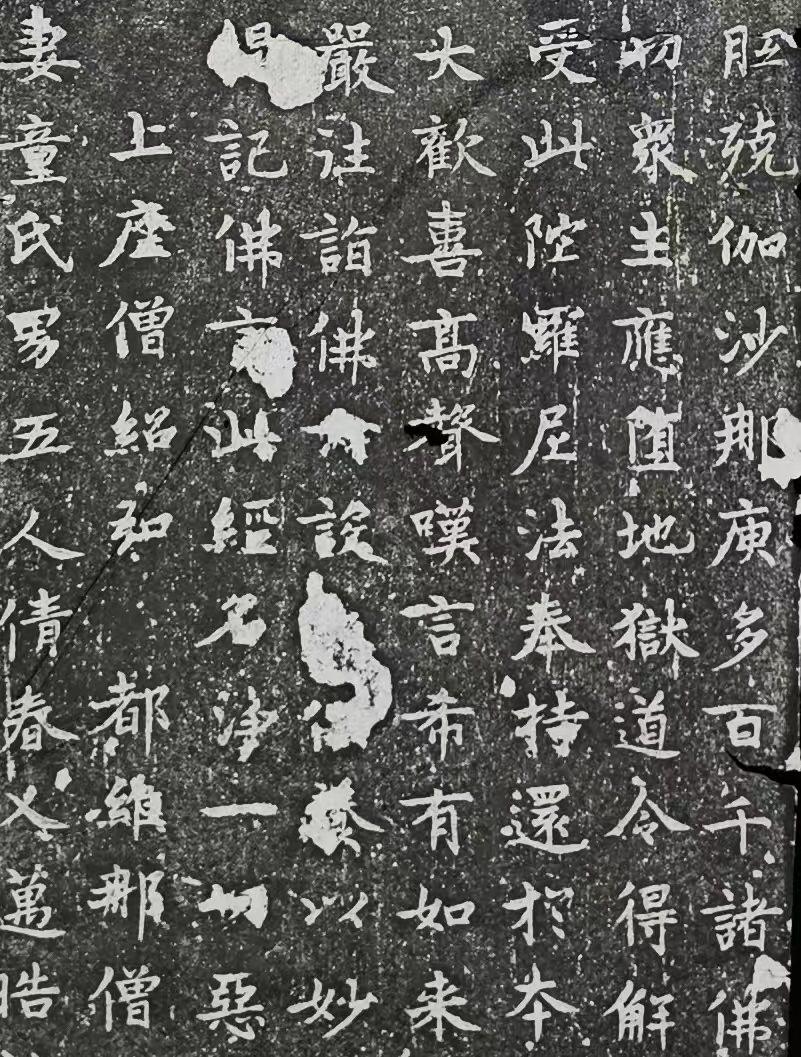 胝殑伽沙那庾多百千諸佛
切衆生應墮地獄道令得解
受此陀羅尼法奉持還於本
大歡喜高聲嘆言希有如来
嚴往詣佛設供養以妙
記佛言此經名淨一切惡
上座僧紹和 都維那僧
妻童氏男五人倩春萬晧